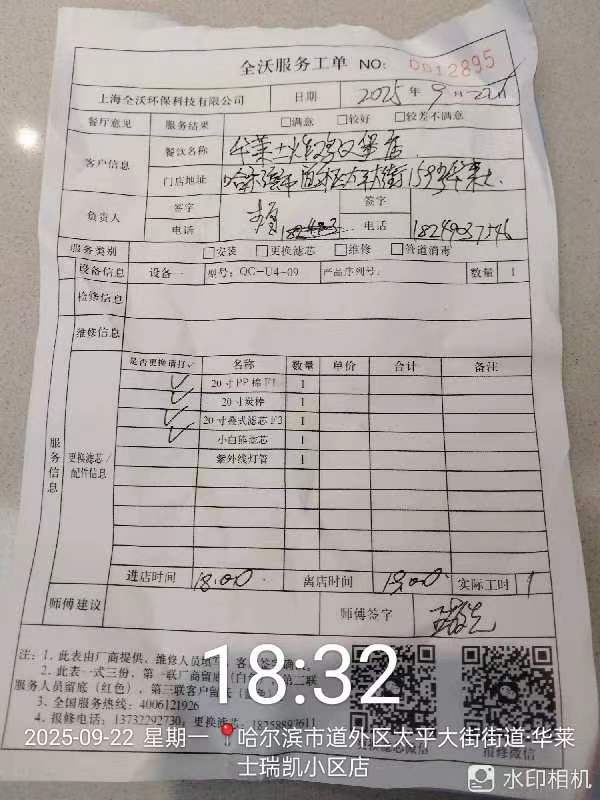 全沃服务工单 NO: 0012895
上海全沃环保科技有限公司 日期 2025年9月22日
餐厅意见 服务结果 □满意 □较好 □较差不满意
客户信息 餐饮名称 华莱士炸鸡汉堡店
门店地址 哈尔滨市道外区太平大街159号华莱士
负责人 签字 签字
电话 电话 18249037546
服务类别 □安装 □更换滤芯 □维修 □管道消毒
设备信息 设备一 型号: QC-U4-09 产品序列号: 数量 1
检修信息
维修信息
服务信息 更换滤芯/配件信息
是否更换请打√ 名称 数量 单价 合计 备注
√ 20寸PP棉F1 1
√ 20寸炭棒 1
√ 20寸叠式滤芯F3 1
√ 小白鲸滤芯 1
紫外线灯管 1
进店时间 18:00 离店时间 19:00 实际工时 1
师傅建议 师傅签字
注: 1、此表由厂商提供、维修人员填写、客
2、此表一式三份、第一联厂商留底(白 第二联
服务人员留底(红色)、第三联客户留
3、全国服务热线: 4006121926
4、报修电话: 13732292730; 更换滤芯: 18258893611
报修微信
18:32
2025-09-22 星期一 哈尔滨市道外区太平大街街道·华莱
士瑞凯小区店
水印相机